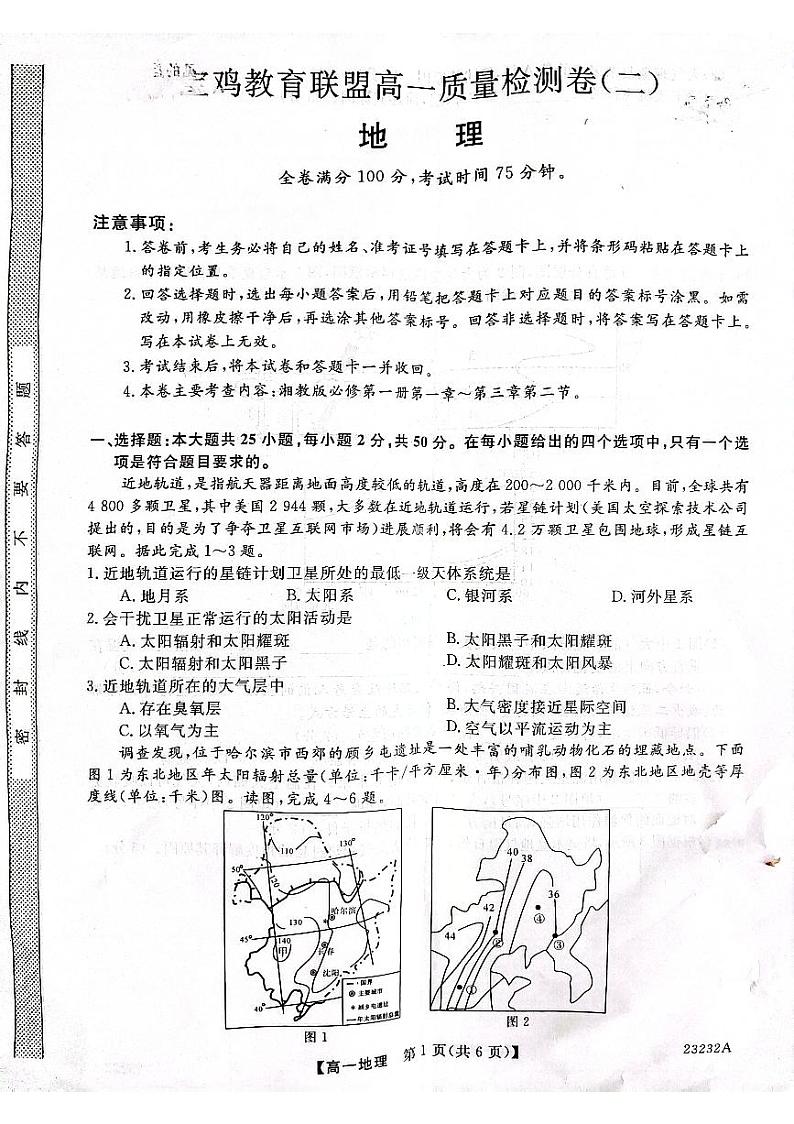 鸡教育联盟高一质量检测卷(二)
地 理
全卷满分100分,考试时间75分钟。
注意事项:
1.答卷前,考生务必将自己的姓名、准考证号填写在答题卡上,并将条形码粘贴在答题卡上
的指定位置。
2.回答选择题时,选出每小题答案后,用铅笔把答题卡上对应题目的答案标号涂黑。如需
改动,用橡皮擦干净后,再选涂其他答案标号。回答非选择题时,将答案写在答题卡上。
写在本试卷上无效。
3.考试结束后,将本试卷和答题卡一并收回。
4.本卷主要考查内容:湘教版必修第一册第一章~第三章第二节。
一、选择题:本大题共25小题,每小题2分,共50分。在每小题给出的四个选项中,只有一个选
项是符合题目要求的。
近地轨道,是指航天器距离地面高度较低的轨道,高度在200~2 000千米内。目前,全球共有
4 800多颗卫星,其中美国2 944颗,大多数在近地轨道运行,若星链计划(美国太空探索技术公司
提出的,目的是为了争夺卫星互联网市场)进展顺利,将会有4.2万颗卫星包围地球,形成星链互
联网。据此完成1~3题。
1.近地轨道运行的星链计划卫星所处的最低一级天体系统是
A.地月系 B.太阳系 C.银河系 D.河外星系
2.会干扰卫星正常运行的太阳活动是
A.太阳辐射和太阳耀斑 B.太阳黑子和太阳耀斑
C.太阳辐射和太阳黑子 D.太阳耀斑和太阳风暴
3.近地轨道所在的大气层中
A.存在臭氧层 B.大气密度接近星际空间
C.以氧气为主 D.空气以平流运动为主
调查发现,位于哈尔滨市西郊的顾乡屯遗址是一处丰富的哺乳动物化石的埋藏地点。下面
图1为东北地区年太阳辐射总量(单位:千卡/平方厘米·年)分布图,图2为东北地区地壳等厚
度线(单位:千米)图。读图,完成4~6题。
120°
130°
110
110
120
50°
50°
130
哈尔滨
45°
140
甲
130
45°
长春
沈阳
40°
40°
国界
主要城市
顾乡屯遗址
年太阳辐射总量
图1
40
38
36
42
④
44
②
③
①
图2
【高一地理 第1页(共6页)】
23232A
密 封 线 内 不 要 答 题